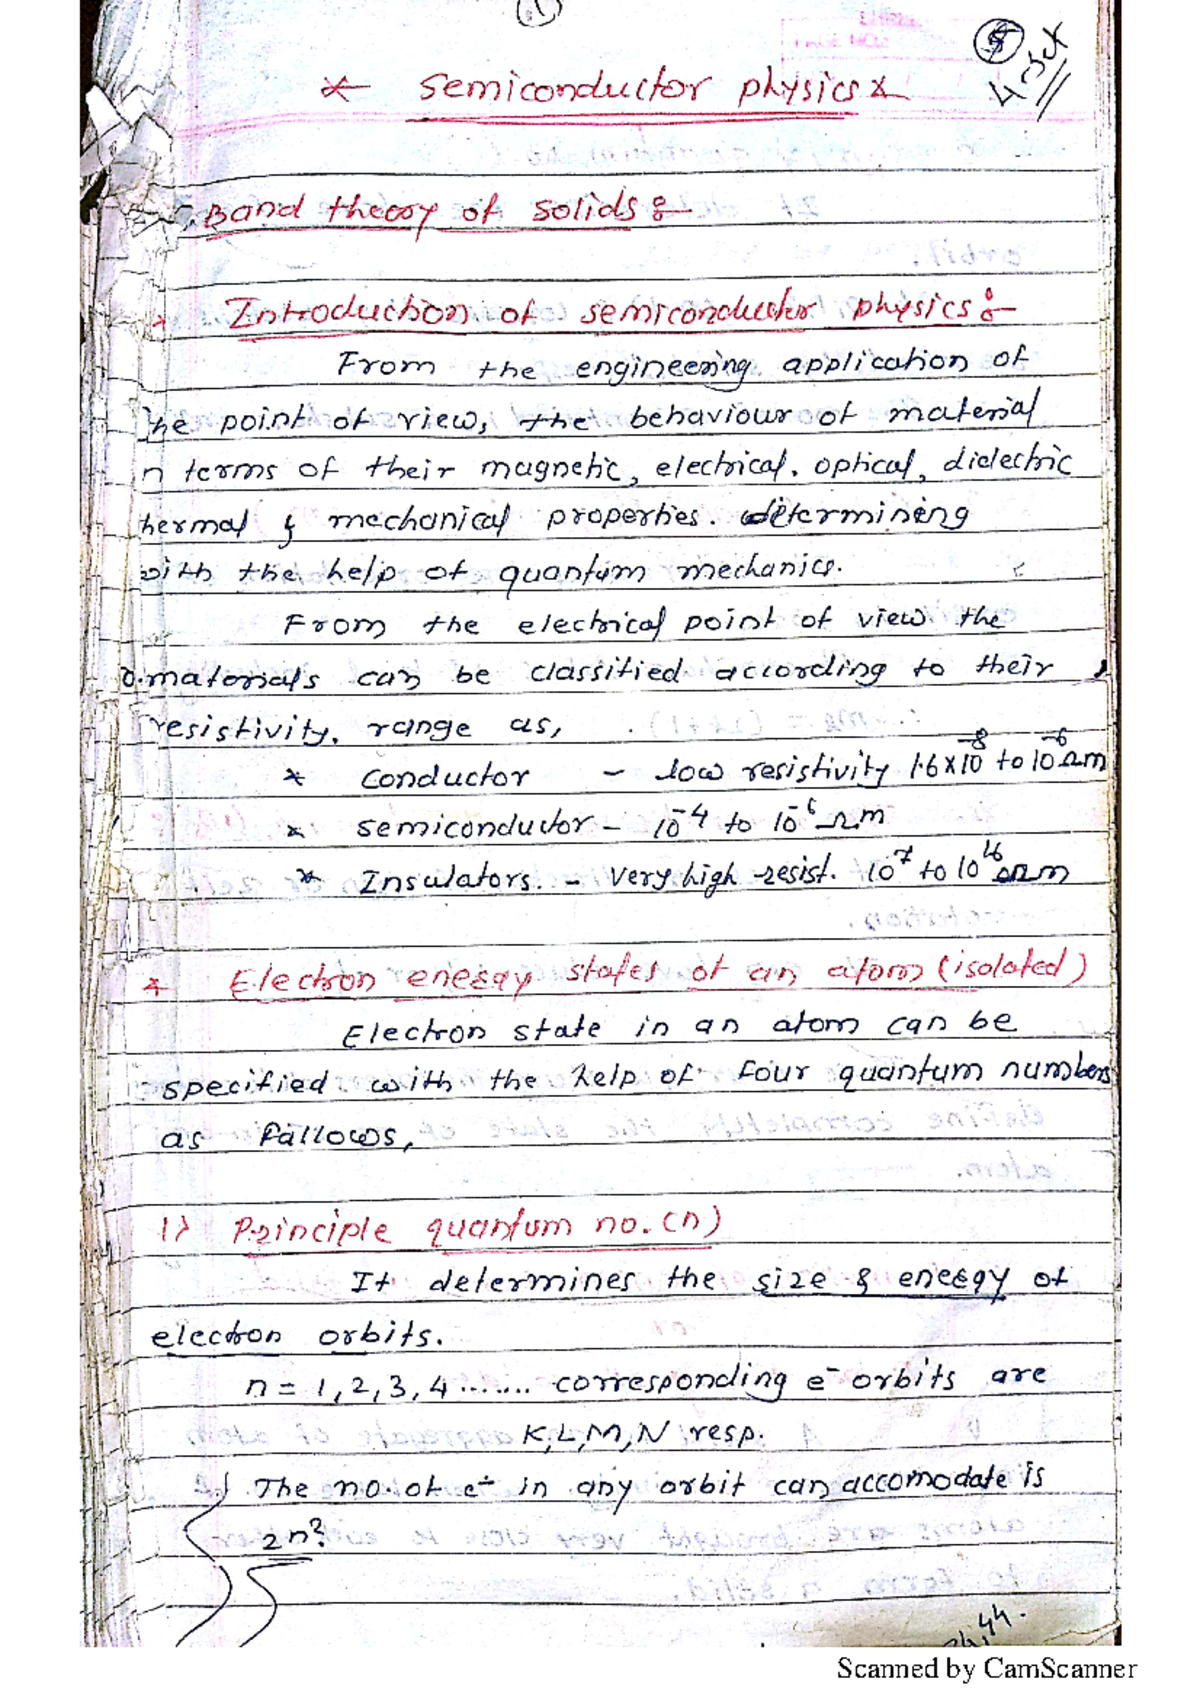 (1)
* Semiconductor physics *
Band theory of solids :-
Introduction of semiconductor physics :-
From the engineering application of
the point of view, the behaviour of material
n terms of their magnetic, electrical. optical, dielectric
hermal & mechanical properties. determining
with the help of quantum mechanics.
From the electrical point of view the
materials can be classified according to their
resistivity. range as,
* conductor - low resistivity 1.6×10⁻⁸ to 10⁻⁶ Ωm
* semiconductor - 10⁻⁴ to 10⁻⁶ Ωm
* Insulators. - Very high resist. 10⁷ to 10¹⁶ Ωm
* Electron energy states of an atom (isolated)
Electron state in an atom can be
specified with the help of four quantum numbers
as fallows,
1) Principle quantum no. (n)
It determines the size & energy of
electron orbits.
n = 1, 2, 3, 4 ....... corresponding e⁻ orbits are
K, L, M, N resp.
The no. of e⁻ in any orbit can accomodate is
2n².
Scanned by CamScanner